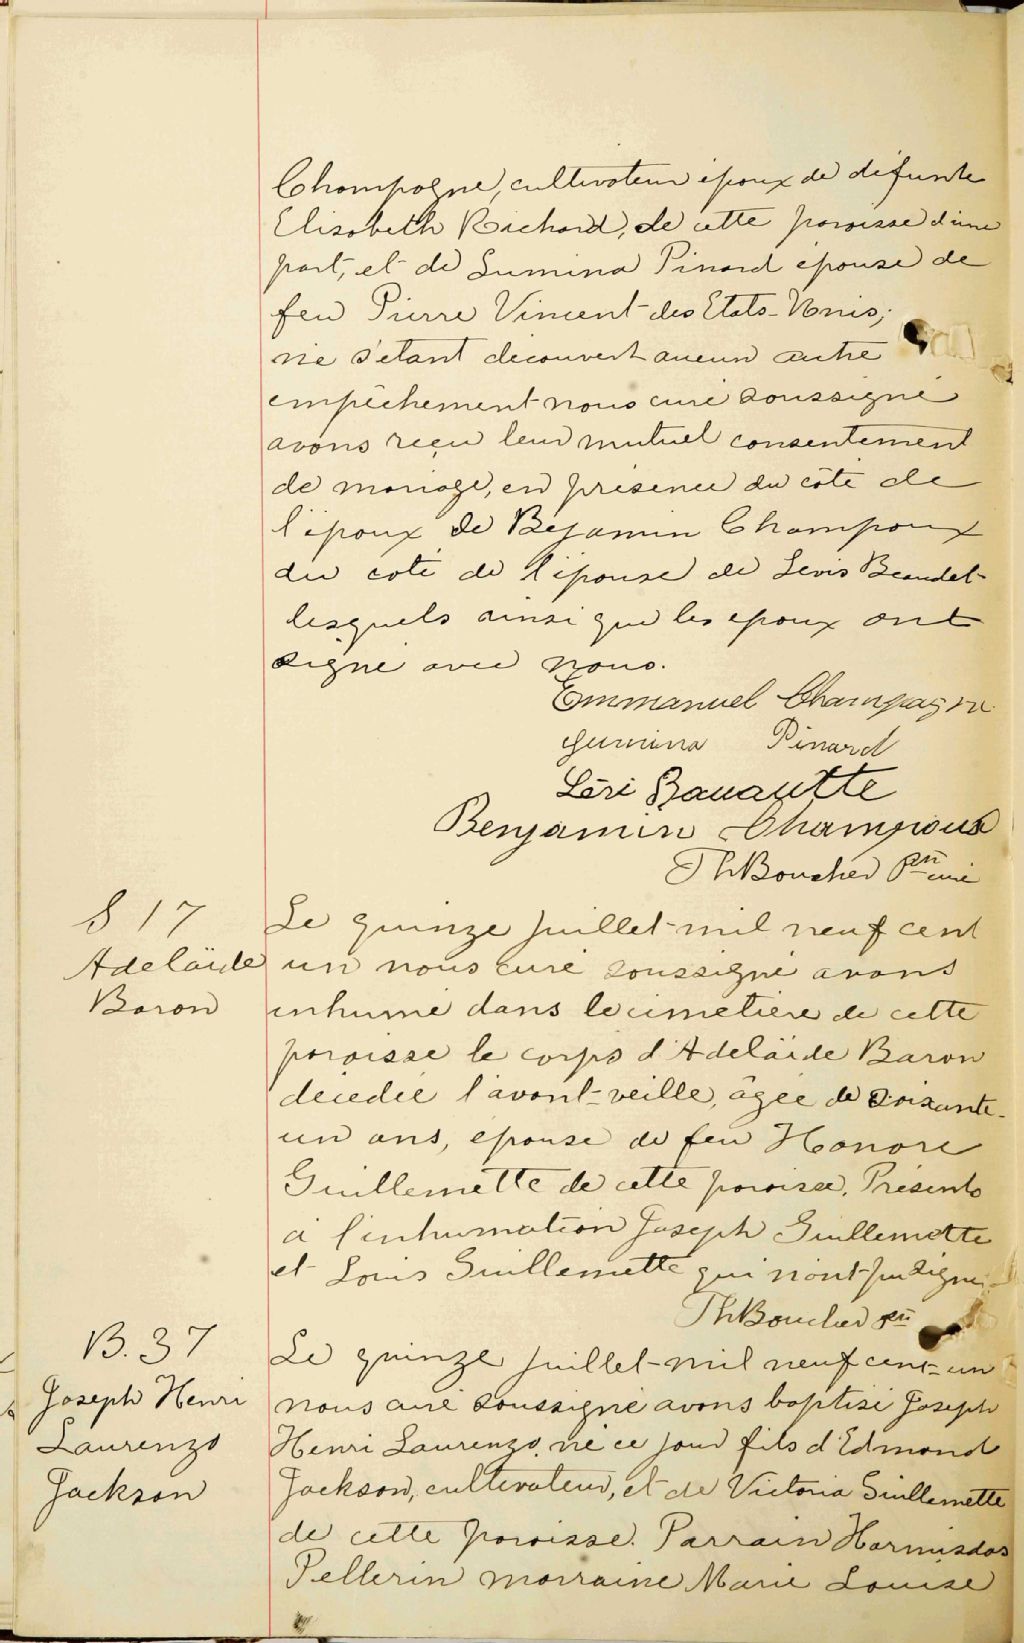 Champagne, cultivateur époux de défunte
Elisabeth Richard, de cette paroisse d'une
part, et de Lumina Pinard épouse de
feu Pierre Vincent des Etats-Unis;
ne s'étant découvert aucun autre
empêchement nous curé soussigné
avons reçu leur mutuel consentement
de mariage, en présence du côté de
l'époux de Bejamin Champoux
du coté de l'épouse de Levis Beaudet
lesquels ainsi que les époux ont
signé avec nous.
Emmanuel Champagne
Lumina Pinard
Benjamin Champoux
Th Boucher Ptre curé
S 17
Adelaïde
Baron
Le quinze juillet mil neuf cent
un nous curé soussigné avons
inhumé dans le cimetière de cette
paroisse le corps d'Adelaïde Baron
décédée l'avant-veille, âgée de soixante-
un ans, épouse de feu Honoré
Guillemette de cette paroisse. Présents
à l'inhumation Joseph Guillemette
et Louis Guillemette qui n'ont pu signer
Th Boucher ptre
B. 37
Joseph Henri
Laurenzo
Jackson
Le quinze juillet mil neuf cent-un
nous curé soussigné avons baptisé Joseph
Henri Laurenzo né ce jour fils d'Edmond
Jackson, cultivateur, et de Victoria Guillemette
de cette paroisse. Parrain Hormisdas
Pellerin marraine Marie Louise